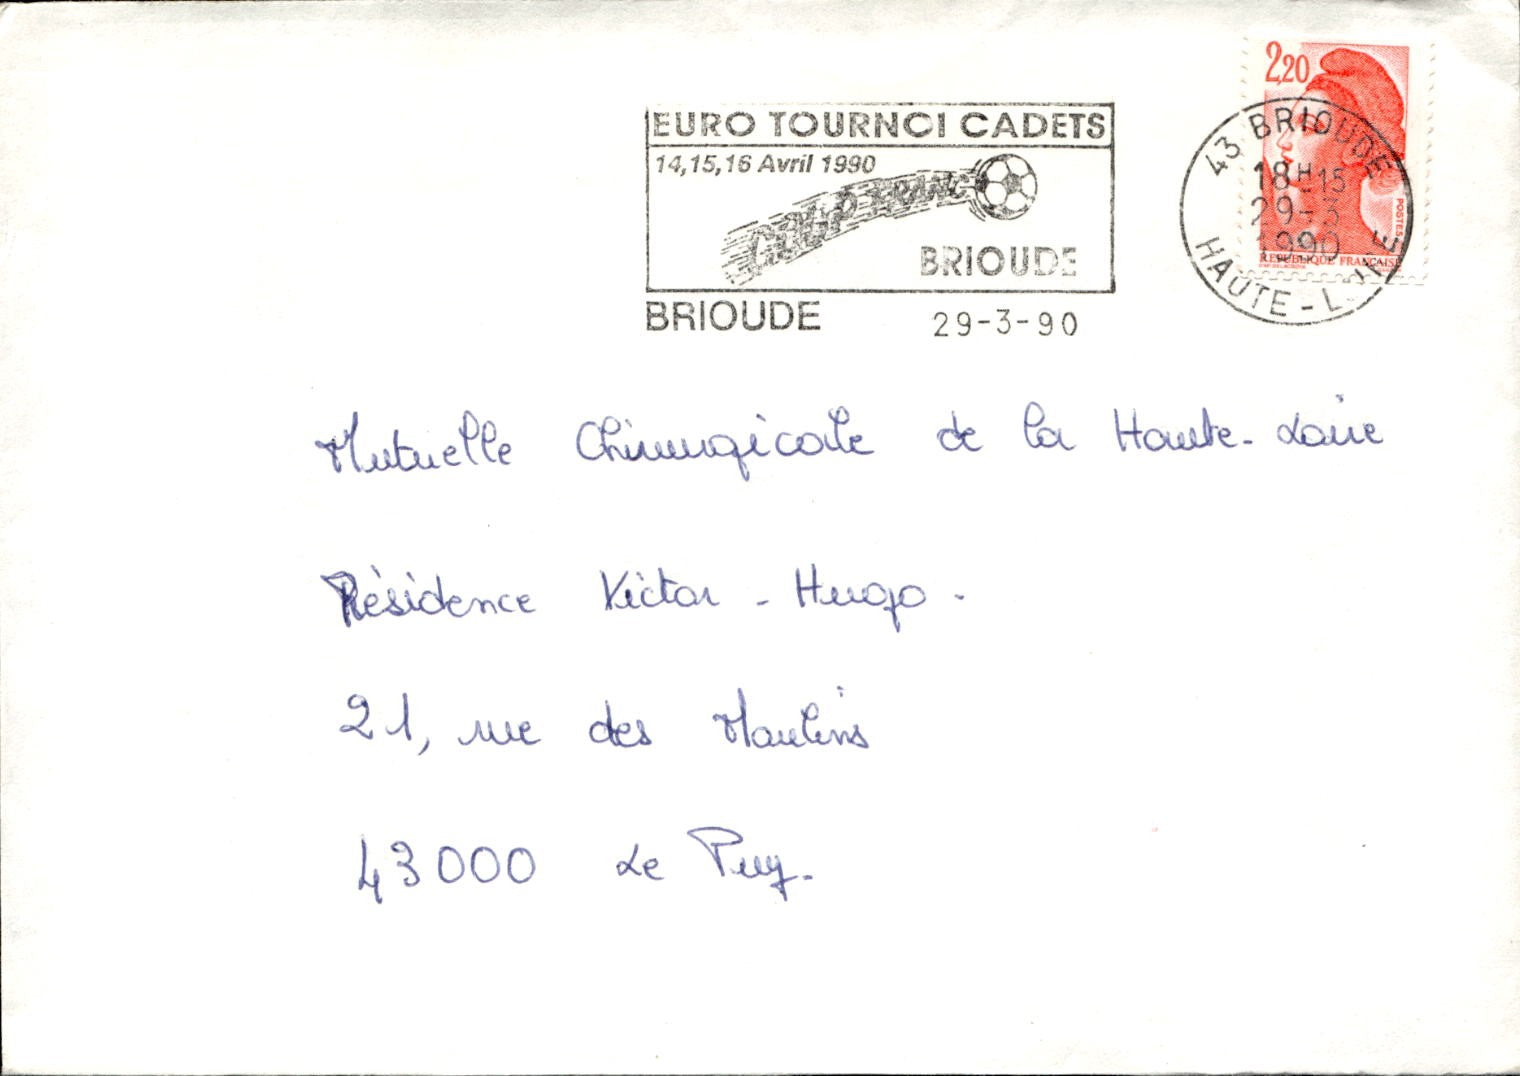 2,20
EURO TOURNOI CADETS
14,15,16 Avril 1990
COUP FRANC
BRIOUDE
BRIOUDE 29-3-90
43 BRIOUDE
18H15
29-3
1990
HAUTE-LOIRE
POSTES
REPUBLIQUE FRANÇAISE
Mutuelle Chirurgicale de la Haute-Loire
Résidence Victor-Hugo.
21, rue des Moulins
43000 Le Puy.